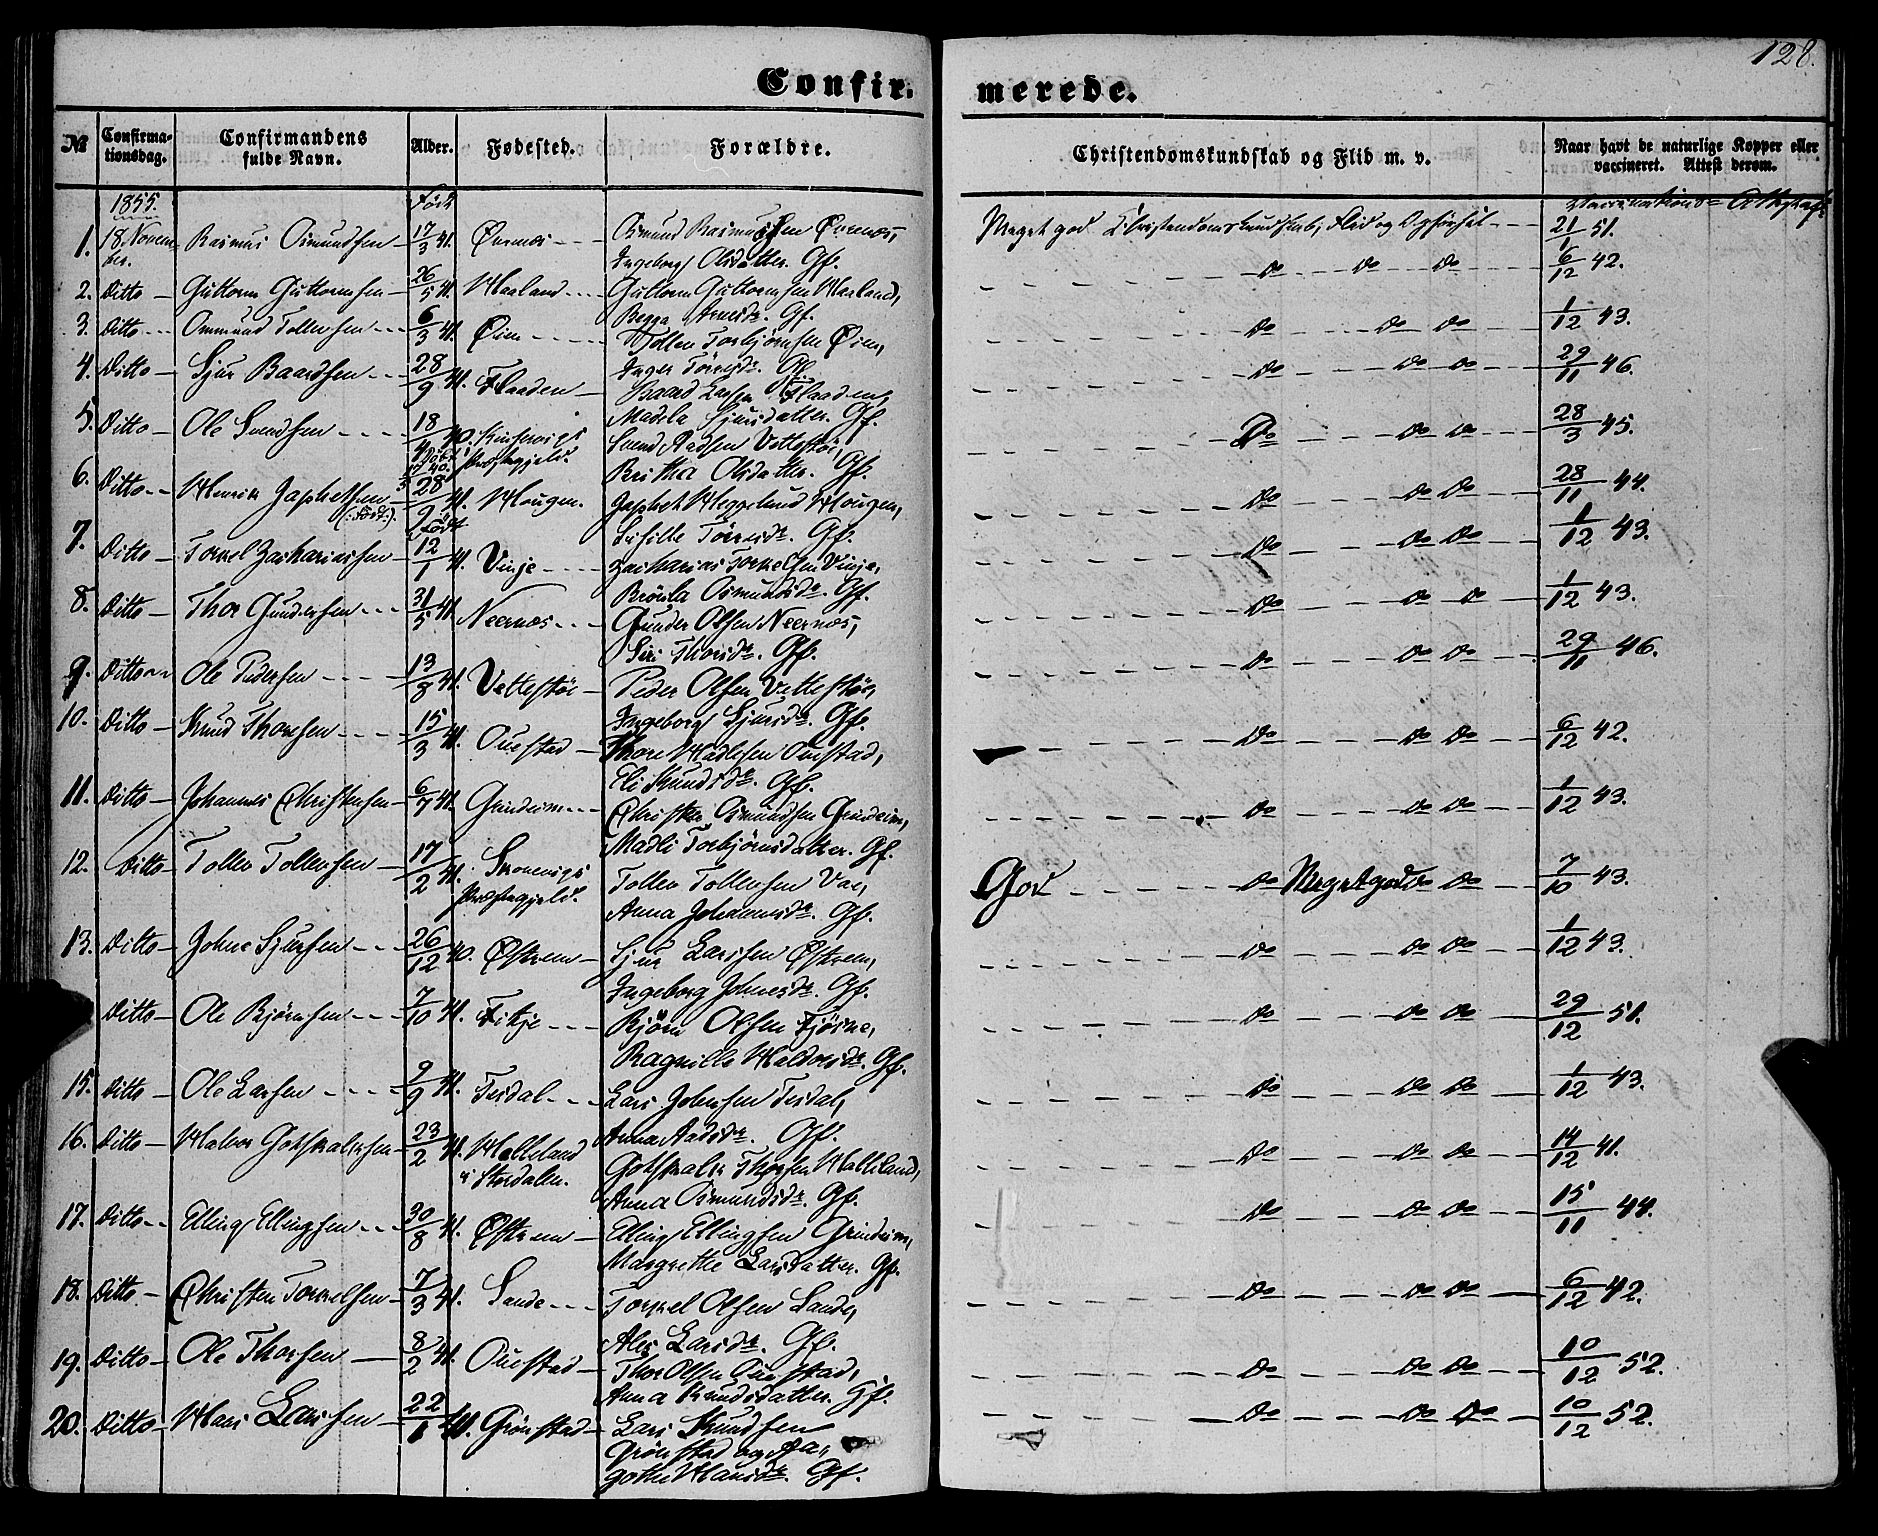 128.
Confir. merede.
№ Confirma-tionsdag. Confirmandens fulde Navn. Alder. Fødested. Forældre. Christendomskundskab og Flid m. v. Naar havt de naturlige Kopper eller vaccineret. Attest derom.
1855. Født
1. 18. Novem-ber. Rasmus Osmundsen 17/3 41. Øvernæs Osmund Rasmussen Øvernæs, Meget god Christendomskundskab, Flid og Opførsel 21/1 51.
Ingeborg Olsdatter. Gf.
2. Ditto Guttorm Guttormsen 26/5 41. Haaland Guttorm Guttormsen Haaland, do do do 6/12 42.
Begga Arnesdr. Gf.
3. Ditto Ommund Tollevsen 6/3 41. Øien Tollev Torbjørnsen Øien, do do do 1/12 43.
Inger Tørresdr. Gf.
4. Ditto Sjur Baardsen 28/9 41. Flaaden Baard Larsen Flaaden, do do do 29/11 46.
Madela Sjursdatter. Gf.
5. Ditto Ole Svendsen 18/ 40. Kinservigs Præstegjeld. Svend Aadsen Vettestøe, Do do do 28/3 45.
Britha Olsdatter. Gf.
6. Ditto Henrik Japhetsen 28/9 41. Hougen. Japhet Heggelund Hougen, do do do 28/11 44.
(:Født:) Født
Sisille Tørresdr. Gf.
7. Ditto Torkel Zachariassen 12/1 41. Vinje Zacharias Torkelsen Vinje, do do do 1/12 43.
Brønla Osmundsdr. Gf.
8. Ditto Thor Gundersen 31/5 41. Neernæs Gunder Olsen Neernæs, do do do 1/12 43.
Siri Thorsdr. Gf.
9. Ditto Ole Pedersen 13/8 41. Vettestøe Peder Olsen Vettestøe, do do do 29/11 46.
Ingeborg Sjursdr. Gf.
10. Ditto Knud Thoresen 15/3 41. Ouestad Thore Hadlesen Ouestad, do do do 6/12 42.
Eli Knudsdr. Gf.
11. Ditto Johannes Christensen 6/7 41. Grindeim Christen Osmundsen Grindeim, do do do 1/12 43.
Madli Torbjörnsdatter. Gf.
12. Ditto Tollev Tollevsen 17/2 41. Skonevigs Præstegjeld. Tollev Tollevsen Vae, God do Meget god do do 7/10 43.
Anna Johannesdr. Gf.
13. Ditto Johne Sjursen 26/12 40. Østrem Sjur Larssen Østrem, do do do 1/12 43.
Ingeborg Johnesdr. Gf.
Ditto Ole Bjørnsen 7/10 41. Fitje Bjørn Olsen Fjøsne, do do do 29/12 51.
Ragnille Haldorsdr. Gf.
15. Ditto Ole Larsen 9/9 41. Tesdal Lars Johnsen Tesdal, do do do 1/12 43.
Anna Aadsdr. Gf.
16. Ditto Halvor Gotskalksen 23/2 41. Helleland i Stordalen. Gotskalk Thorsen Halleland, do do do 14/12 41.
Anna Osmundsdr. Gf.
17. Ditto Elling Ellingsen 30/8 41. Østrem Elling Ellingsen Grindeim, do do do 15/11 44.
Margrethe Larsdatter. Gf.
18. Ditto Christen Torkelsen 7/3 41. Sande Torkel Olsen Sande, do do do 6/12 42.
Ales Larsdr. Gf.
19. Ditto Ole Thorsen 8/2 41. Ouestad Thor Olsen Ouestad, do do do 10/12 52.
Anna Knudsdatter. Gf.
20. Ditto Hans Larssen 22/1 41. Grönstad Lars Knudsen do do do 10/12 52.
Grönstad og Aa,
gothe Hansdr. Gf.